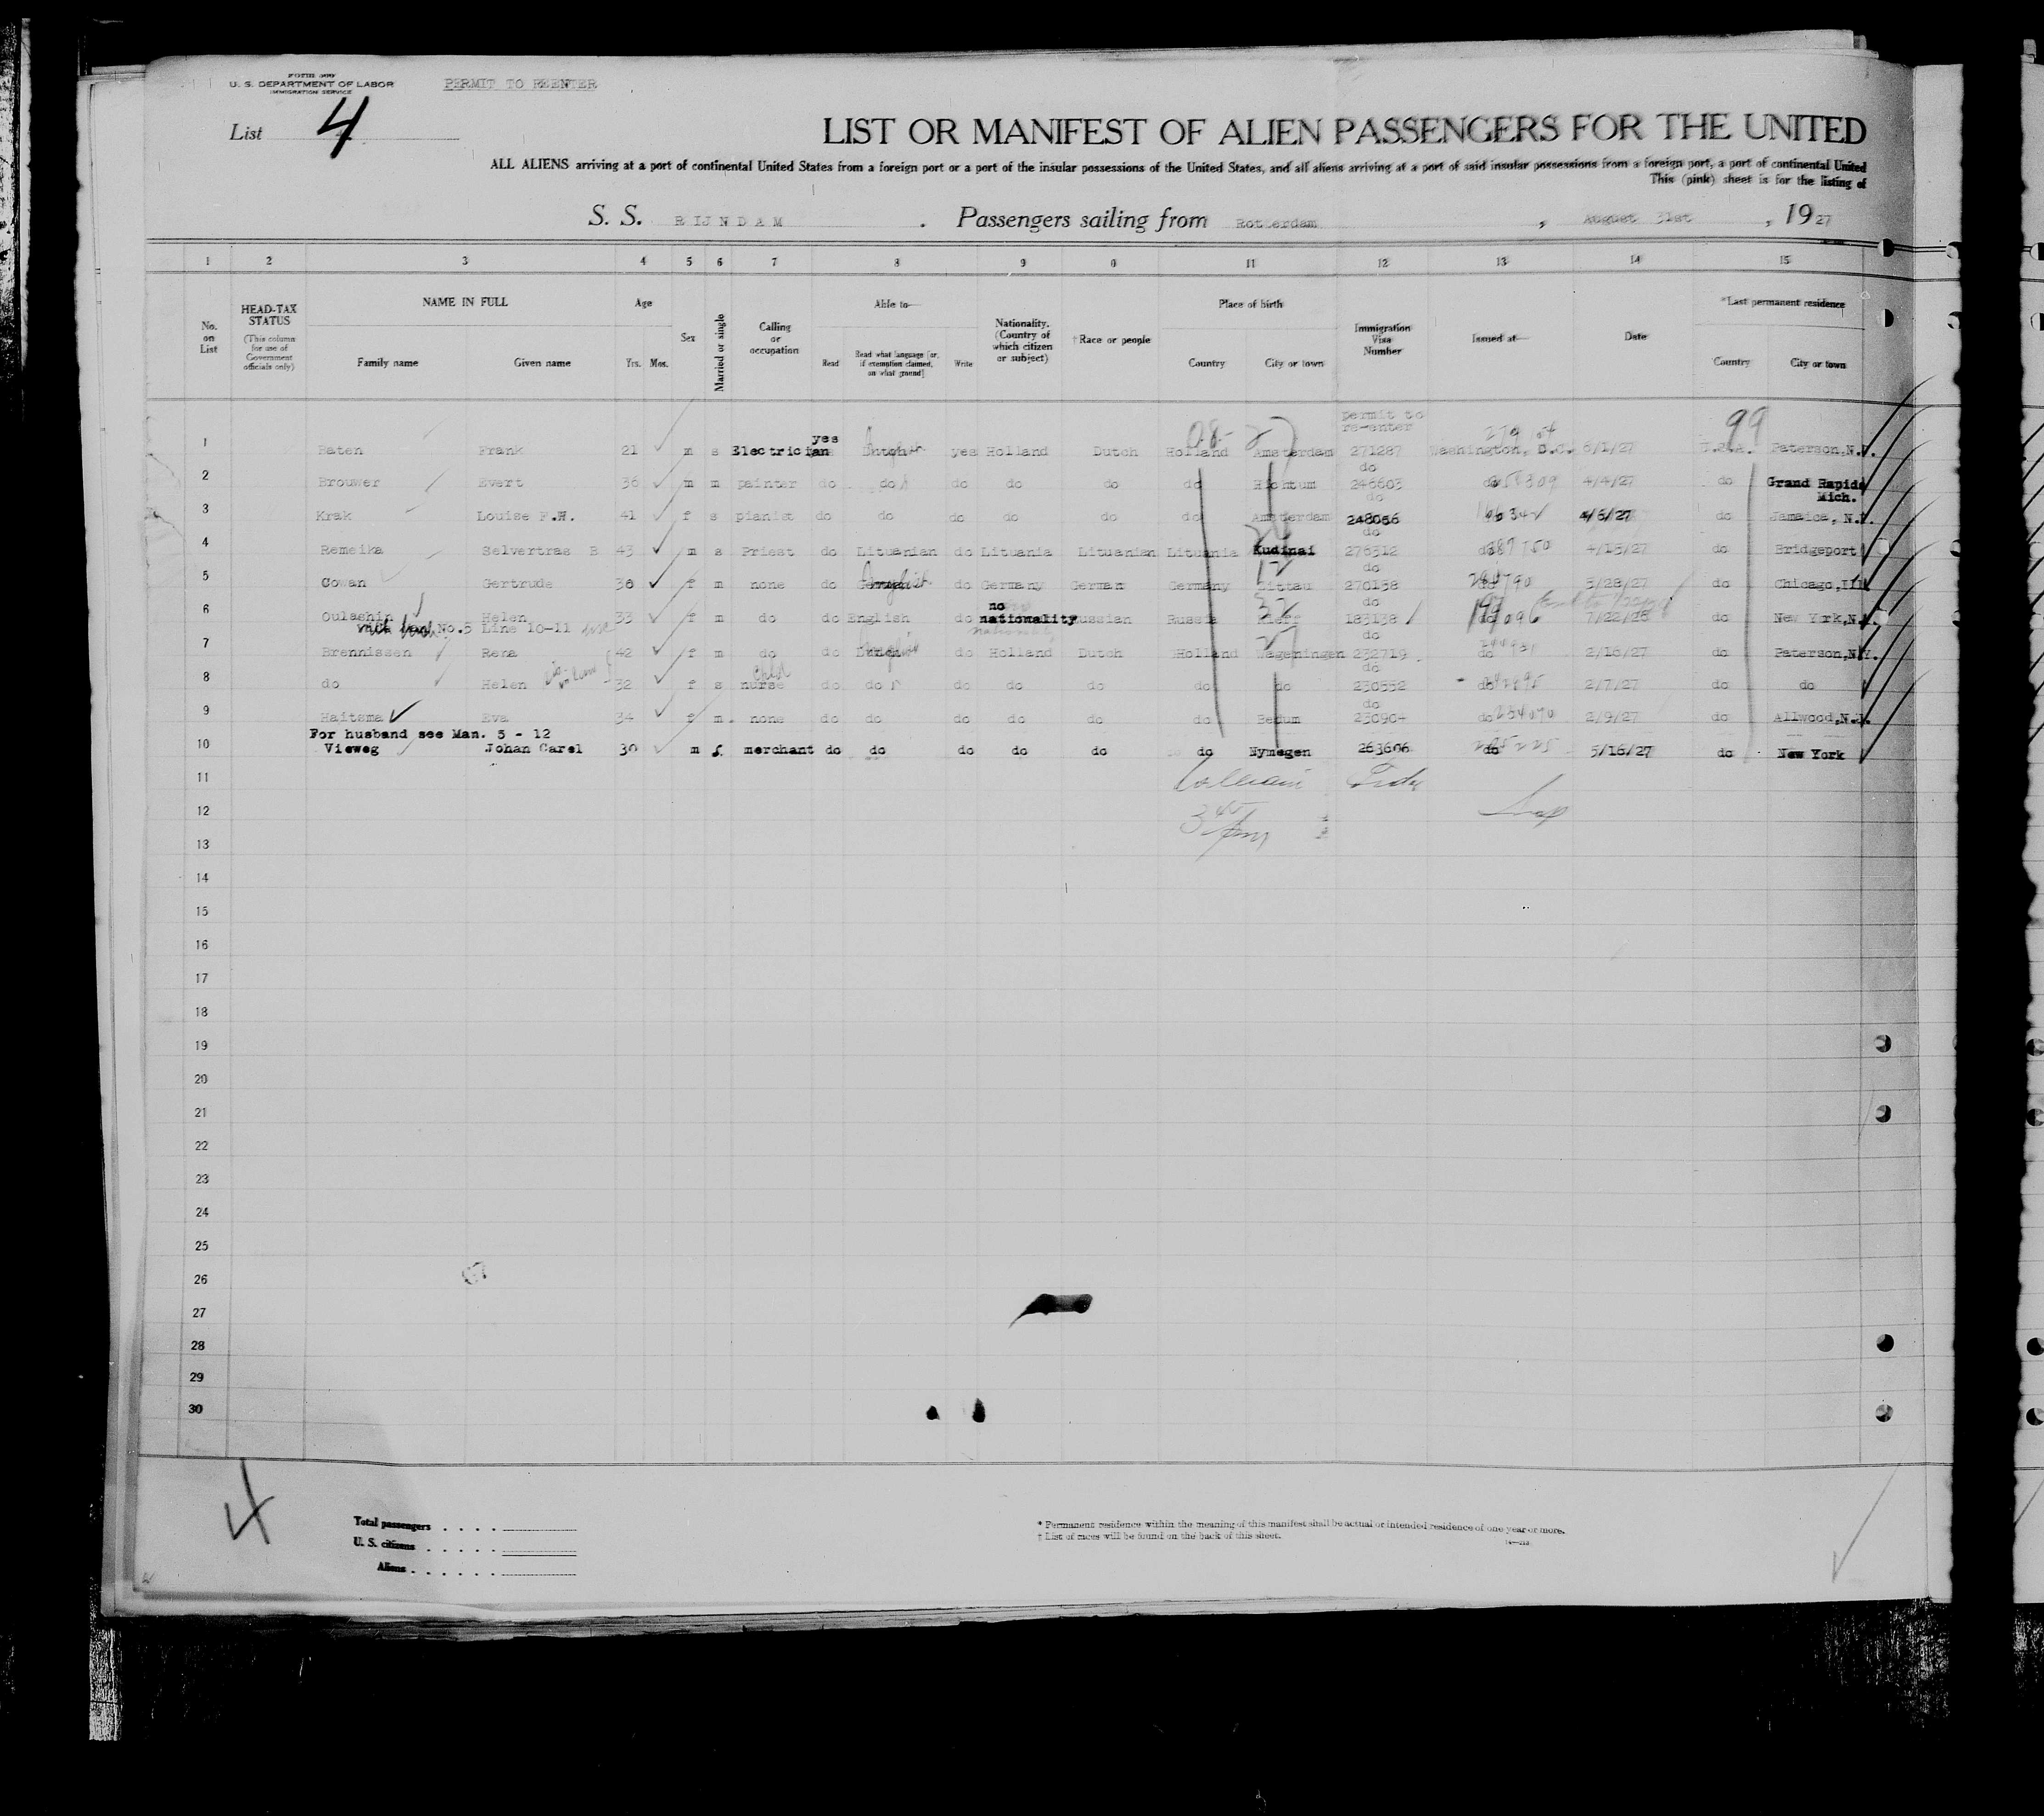 FORM 500
U. S. DEPARTMENT OF LABOR
IMMIGRATION SERVICE
PERMIT TO REENTER
List 4
LIST OR MANIFEST OF ALIEN PASSENGERS FOR THE UNITED
ALL ALIENS arriving at a port of continental United States from a foreign port or a port of the insular possessions of the United States, and all aliens arriving at a port of said insular possessions from a foreign port, a port of continental United
This (pink) sheet is for the listing of
S. S. RIJNDAM . Passengers sailing from Rotterdam , August 31st , 1927
1 2 3 4 5 6 7 8 9 0 11 12 13 14 15
No. on List
HEAD-TAX STATUS (This column for use of Government officials only)
NAME IN FULL Family name Given name
Age Yrs. Mos.
Sex
Married or single
Calling or occupation
Able to— Read Read what language [or, if exemption claimed, on what ground] Write
Nationality. (Country of which citizen or subject)
†Race or people
Place of birth Country City or town
Immigration Visa Number
Issued at—
Date
*Last permanent residence Country City or town
permit to re-enter 99
1 Raten Frank 21 m s Electrician yes Dutch yes Holland Dutch Holland Amsterdam 271287 Washington, D.C. 6/1/27 U.S.A. Paterson,N.J.
do
2 Brouwer Evert 36 m m painter do do do do do do Hichtum 246603 do 4/4/27 do Grand Rapids Mich.
do
3 Krak Louise F.H. 41 f s pianist do do do do do do Amsterdam 248056 do 4/6/27 do Jamaica, N.Y.
do
4 Remeika Selvertras B 43 m s Priest do Lituanian do Lituania Lituanian Lituania Kudinai 276312 do 4/15/27 do Bridgeport
do
5 Cowan Gertrude 38 f m none do English do Germany German Germany Zittau 270138 5/28/27 do Chicago,Ill.
do
6 Oulashin Helen 33 f m do do English do no nationality Russian Russia Kieff 183138 do 7/22/26 do New York,N.Y.
No.5 Line 10-11
do
7 Brennissen Rena 42 f m do do Dutch do Holland Dutch Holland Wageningen 232719 do 2/16/27 do Paterson,N.Y.
do
8 do Helen 32 f s nurse do do do do do do do 230552 do 2/7/27 do do
do
9 Haitsma Eva 34 f m. none do do do do do do Bedum 230904 do 2/9/27 do Allwood,N.J.
For husband see Man. 5 - 12
10 Vieweg Johan Carel 30 m s merchant do do do do do do Nymegen 263606 do 5/16/27 do New York
11
12
13
14
15
16
17
18
19
20
21
22
23
24
25
26
27
28
29
30
4
Total passengers . . . .
U. S. citizens . . . . .
Aliens . . . . . .
* Permanent residence within the meaning of this manifest shall be actual or intended residence of one year or more.
† List of races will be found on the back of this sheet.